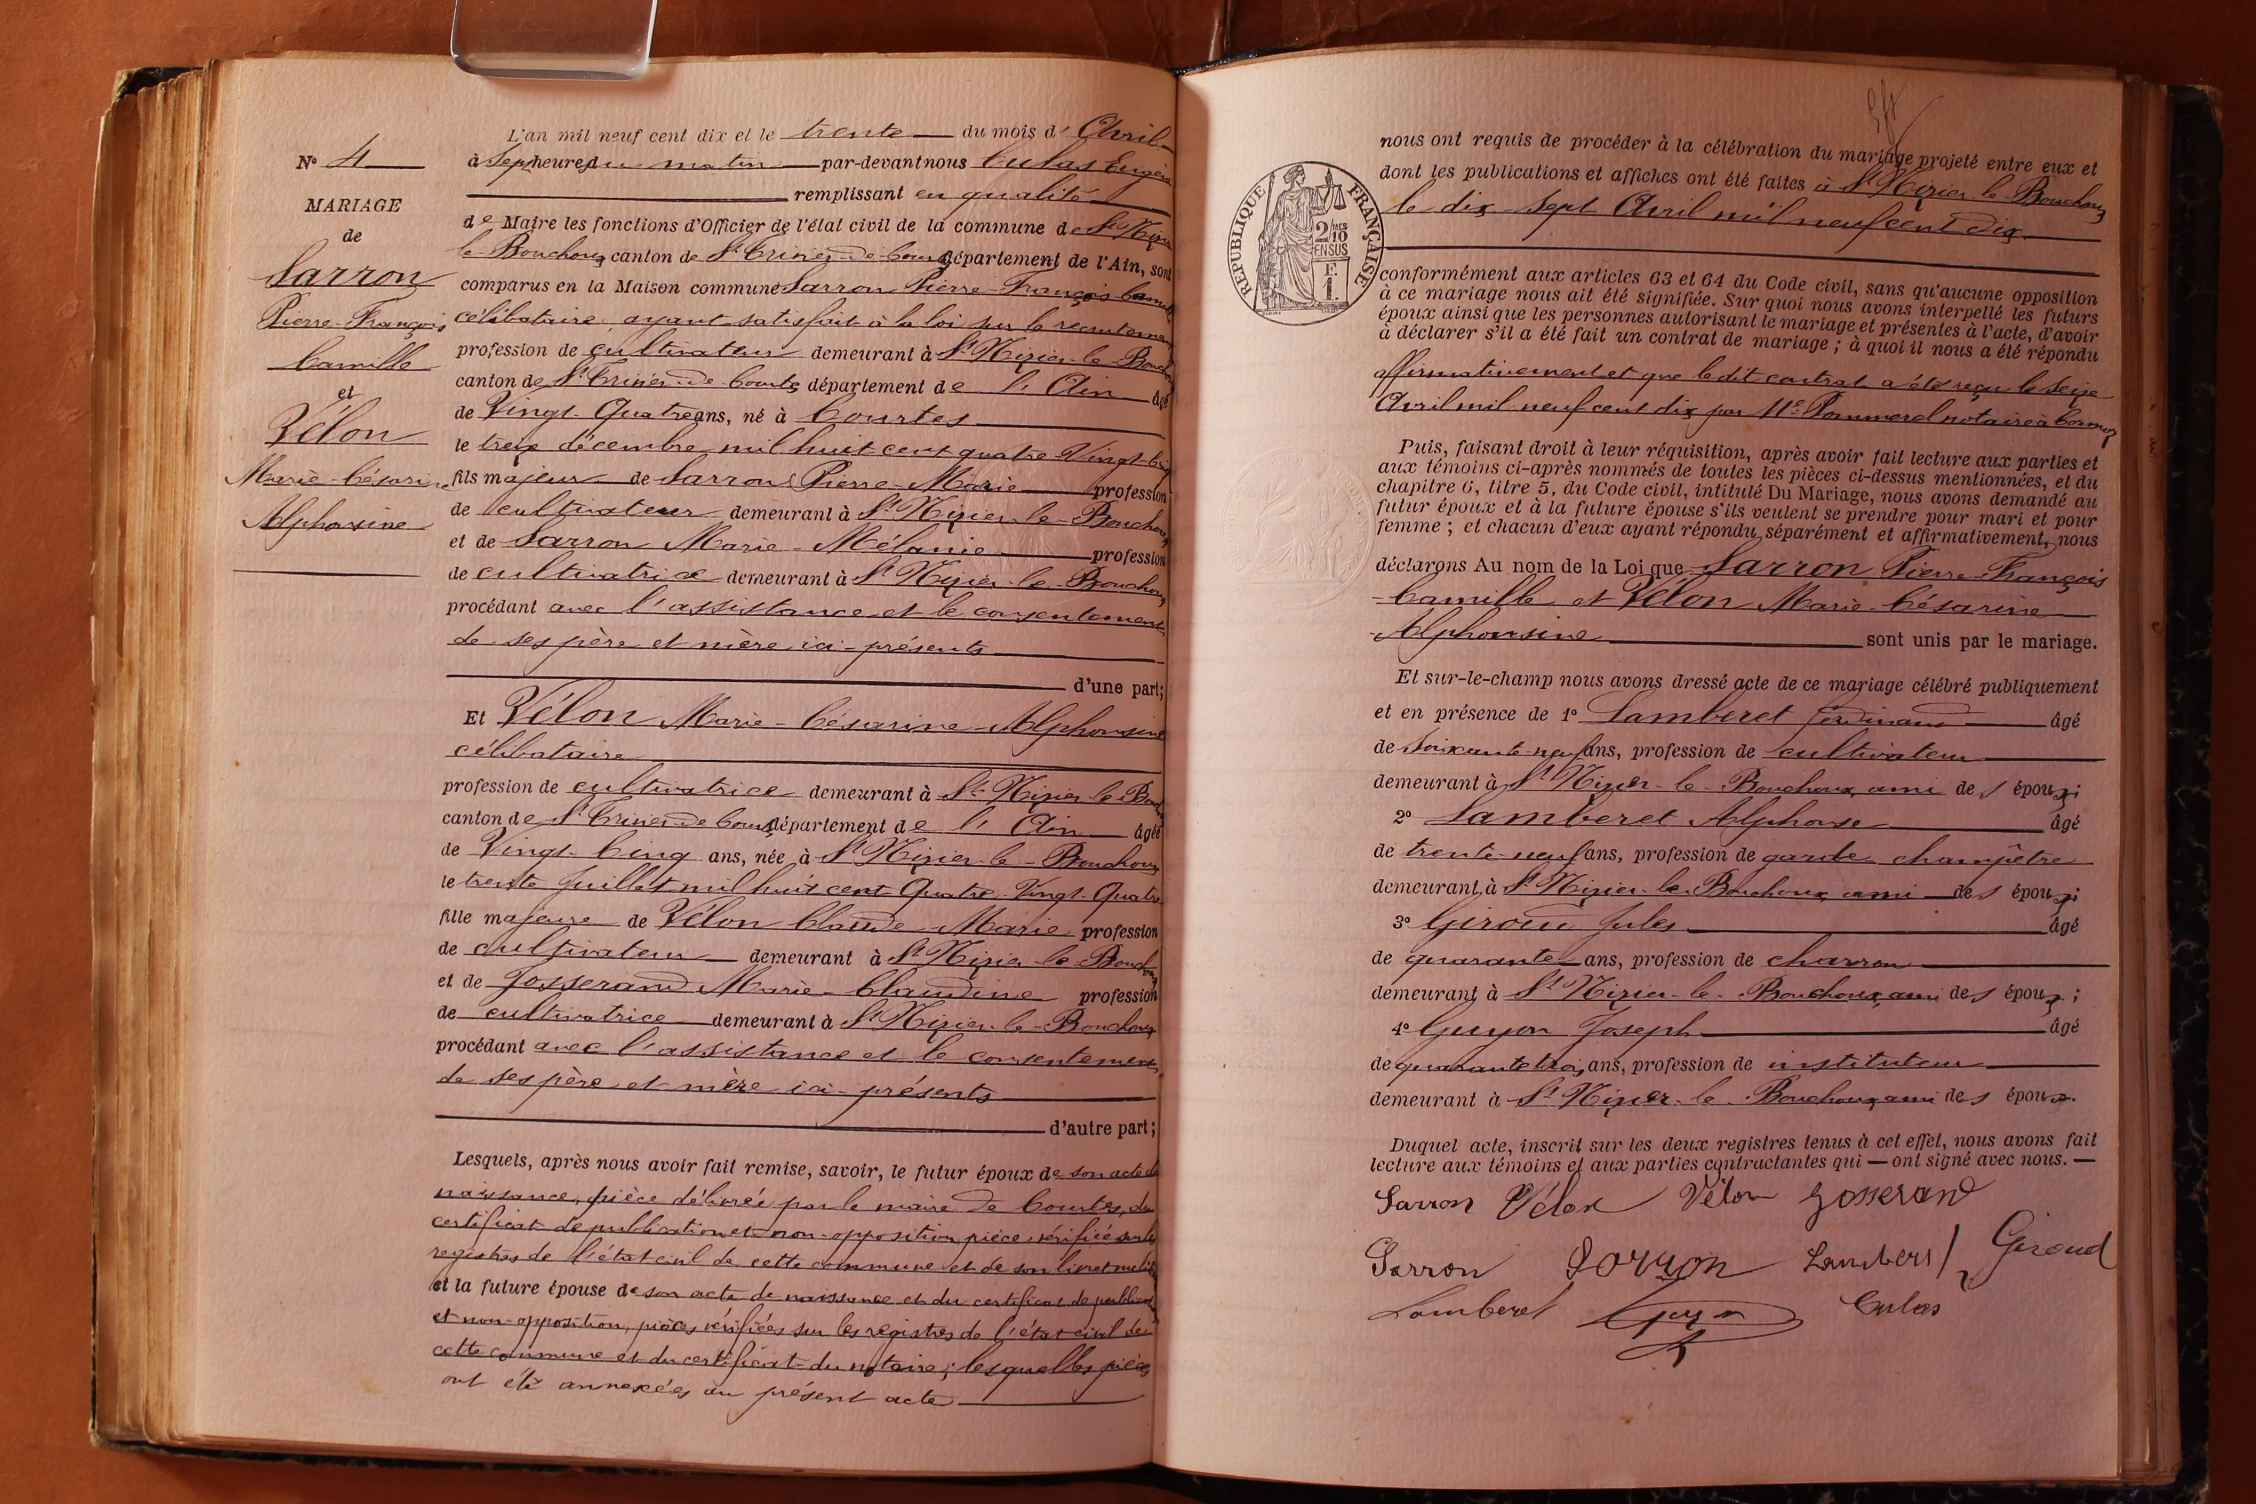 N° 4
MARIAGE
de
Sarron
Pierre-François
Camille
et
Vélon
Marie-Césarine
Alphonsine
L'an mil neuf cent dix et le trente du mois d' Avril
à sept heures du matin par-devant nous Culas Eugène
remplissant en qualité
de Maire les fonctions d'Officier de l'état civil de la commune de St Nizier
le-Bouchoux canton de St Trivier-de-Courtes département de l'Ain, sont
comparus en la Maison commune Sarron Pierre-François Camille
célibataire ayant satisfait à la loi sur le recrutement
profession de cultivateur demeurant à St Nizier-le-Bouchoux
canton de St Trivier-de-Courtes département de l'Ain âgé
de Vingt-Quatre ans, né à Courtes
le treize décembre mil huit cent quatre-Vingt-cinq
fils majeur de Sarron Pierre-Marie profession
de cultivateur demeurant à St Nizier-le-Bouchoux
et de Sarron Marie-Mélanie profession
de cultivatrice demeurant à St Nizier-le-Bouchoux
procédant avec l'assistance et le consentement
de ses père et mère ici-présents
d'une part;
Et Vélon Marie-Césarine-Alphonsine
célibataire
profession de cultivatrice demeurant à St Nizier-le-Bouchoux
canton de St Trivier-de-Courtes département de l'Ain âgée
de Vingt-Cinq ans, née à St Nizier-le-Bouchoux
le trente Juillet mil huit cent Quatre-Vingt-Quatre
fille majeure de Vélon Claude-Marie profession
de cultivateur demeurant à St Nizier-le-Bouchoux
et de Josserand Marie-Claudine profession
de cultivatrice demeurant à St Nizier-le-Bouchoux
procédant avec l'assistance et le consentement
de ses père et mère ici-présents
d'autre part;
Lesquels, après nous avoir fait remise, savoir, le futur époux de son acte de
naissance, pièce délivrée par le maire de Courtes, du
certificat de publication et non-opposition pièce vérifiée sur les
registres de l'état civil de cette commune et de son livret militaire
et la future épouse de son acte de naissance et du certificat de publication
et non-opposition, pièces vérifiées sur les registres de l'état civil de
cette commune et du certificat du notaire; lesquelles pièces
ont été annexées au présent acte
nous ont requis de procéder à la célébration du mariage projeté entre eux et
dont les publications et affiches ont été faites à St Nizier le Bouchoux
le dix-sept Avril mil neuf cent dix
RÉPUBLIQUE FRANÇAISE
2/10 EN SUS
F. 1.
conformément aux articles 63 et 64 du Code civil, sans qu'aucune opposition
à ce mariage nous ait été signifiée. Sur quoi nous avons interpellé les futurs
époux ainsi que les personnes autorisant le mariage et présentes à l'acte, d'avoir
à déclarer s'il a été fait un contrat de mariage ; à quoi il nous a été répondu
affirmativement et que le dit contrat a été reçu le seize
Avril mil neuf cent dix par Me Pommerel notaire à Cormoz
Puis, faisant droit à leur réquisition, après avoir fait lecture aux parties et
aux témoins ci-après nommés de toutes les pièces ci-dessus mentionnées, et du
chapitre 6, titre 5, du Code civil, intitulé Du Mariage, nous avons demandé au
futur époux et à la future épouse s'ils veulent se prendre pour mari et pour
femme ; et chacun d'eux ayant répondu séparément et affirmativement, nous
déclarons Au nom de la Loi que Sarron Pierre-François
Camille et Vélon Marie-Césarine
Alphonsine sont unis par le mariage.
Et sur-le-champ nous avons dressé acte de ce mariage célébré publiquement
et en présence de 1° Lamberet Ferdinand âgé
de Soixante-neuf ans, profession de cultivateur
demeurant à St Nizier-le-Bouchoux, ami des époux;
2° Lamberet Alphonse âgé
de trente-neuf ans, profession de garde champêtre
demeurant à St Nizier-le-Bouchoux ami des époux;
3° Giroud Jules âgé
de quarante ans, profession de charron
demeurant à St Nizier-le-Bouchoux, ami des époux ;
4° Guyon Joseph âgé
de quarante trois ans, profession de instituteur
demeurant à St Nizier-le-Bouchoux, ami des époux.
Duquel acte, inscrit sur les deux registres tenus à cet effet, nous avons fait
lecture aux témoins et aux parties contractantes qui — ont signé avec nous. —
Sarron Vélon Vélon Josserand
Sarron Sarron Lamberet Giroud
Lamberet Guyon Culas